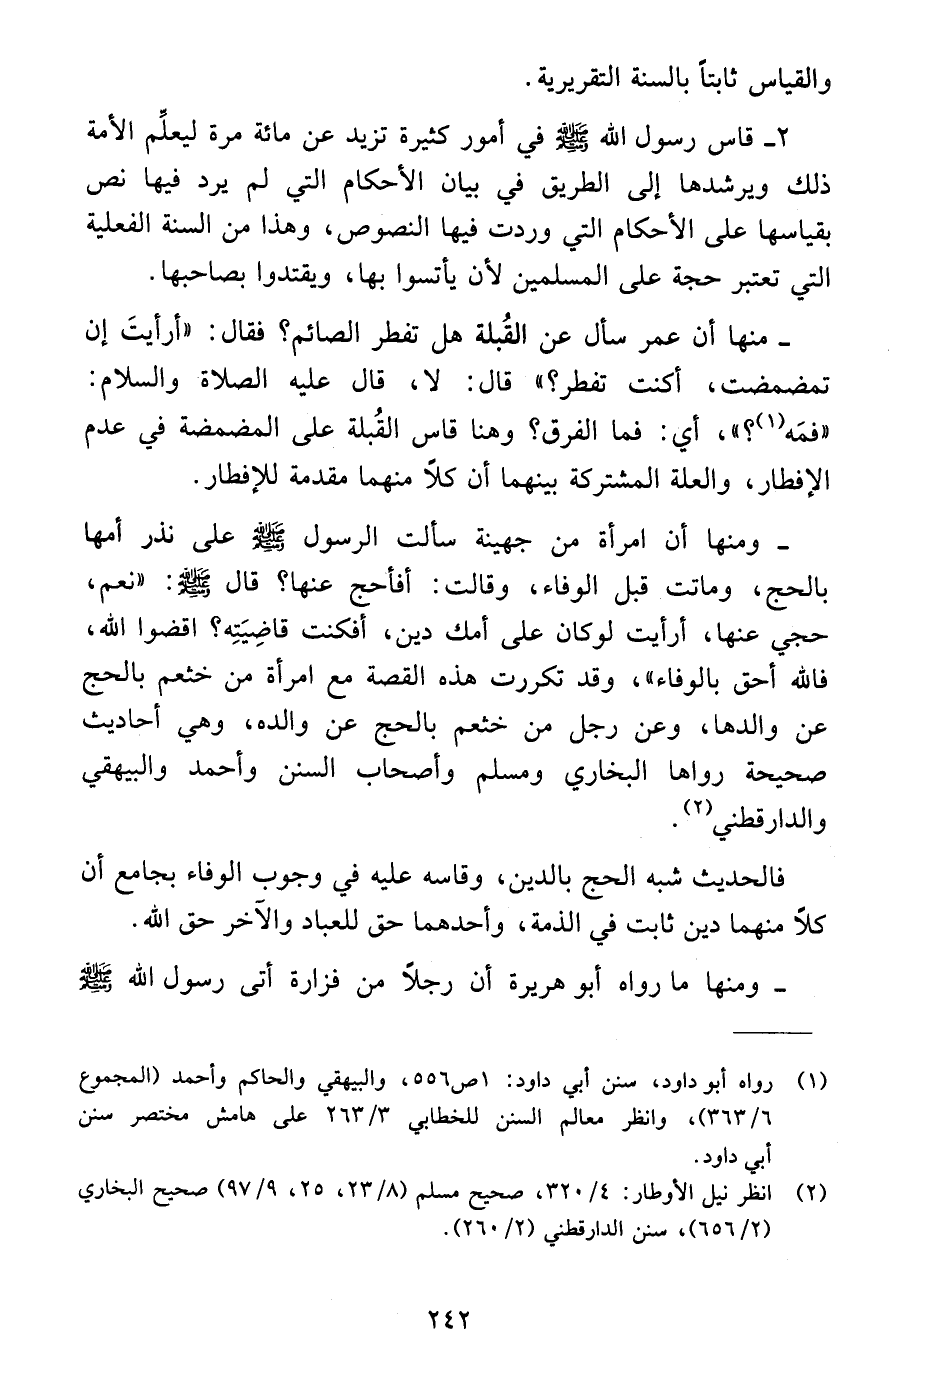 والقياس ثابتاً بالسنة التقريرية.
٢ـ قاس رسول الله ﷺ في أمور كثيرة تزيد عن مائة مرة ليعلِّم الأمة
ذلك ويرشدها إلى الطريق في بيان الأحكام التي لم يرد فيها نص
بقياسها على الأحكام التي وردت فيها النصوص، وهذا من السنة الفعلية
التي تعتبر حجة على المسلمين لأن يأتسوا بها، ويقتدوا بصاحبها.
ـ منها أن عمر سأل عن القُبلة هل تفطر الصائم؟ فقال: «أرأيتَ إن
تمضمضت، أكنت تفطر؟» قال: لا، قال عليه الصلاة والسلام:
«فمَه(١)؟»، أي: فما الفرق؟ وهنا قاس القُبلة على المضمضة في عدم
الإفطار، والعلة المشتركة بينهما أن كلاً منهما مقدمة للإفطار.
ـ ومنها أن امرأة من جهينة سألت الرسول ﷺ على نذر أمها
بالحج، وماتت قبل الوفاء، وقالت: أفأحج عنها؟ قال ﷺ: «نعم،
حجي عنها، أرأيت لوكان على أمك دين، أفكنت قاضِيَتِه؟ اقضوا الله،
فالله أحق بالوفاء»، وقد تكررت هذه القصة مع امرأة من خثعم بالحج
عن والدها، وعن رجل من خثعم بالحج عن والده، وهي أحاديث
صحيحة رواها البخاري ومسلم وأصحاب السنن وأحمد والبيهقي
والدارقطني(٢).
فالحديث شبه الحج بالدين، وقاسه عليه في وجوب الوفاء بجامع أن
كلاً منهما دين ثابت في الذمة، وأحدهما حق للعباد والآخر حق الله.
ـ ومنها ما رواه أبو هريرة أن رجلاً من فزارة أتى رسول الله ﷺ
(١) رواه أبو داود، سنن أبي داود: ١ص٥٥٦، والبيهقي والحاكم وأحمد (المجموع
٣٦٣/٦)، وانظر معالم السنن للخطابي ٢٦٣/٣ على هامش مختصر سنن
أبي داود.
(٢) انظر نيل الأوطار: ٣٢٠/٤، صحيح مسلم (٢٣/٨، ٢٥، ٩٧/٩) صحيح البخاري
(٦٥٦/٢)، سنن الدارقطني (٢٦٠/٢).
٢٤٢